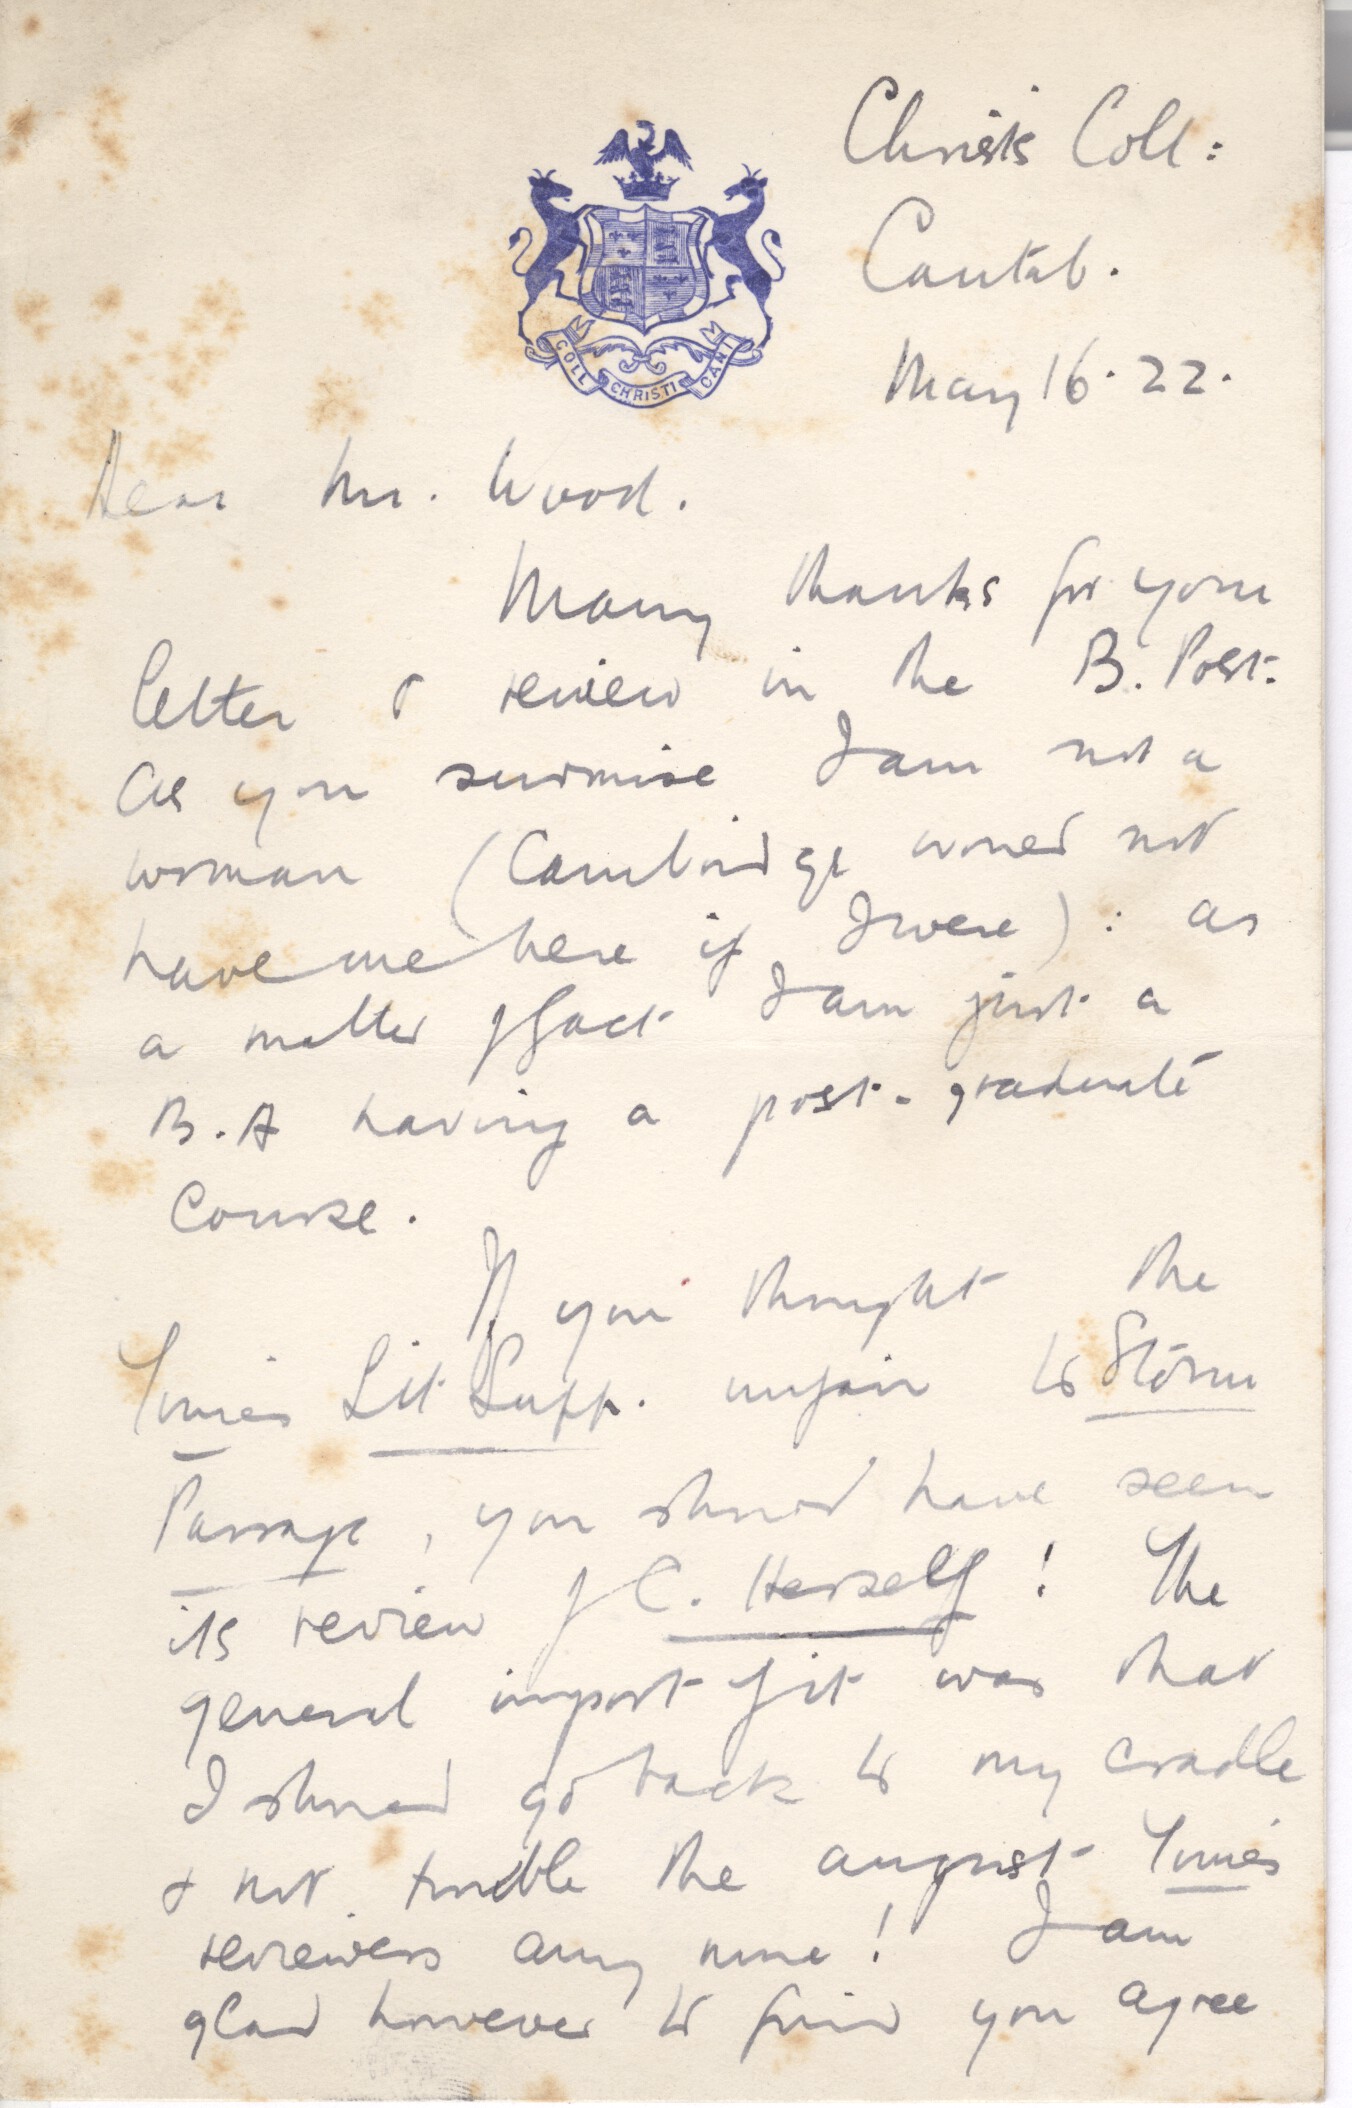 Christ's Coll:
Cantab.
May 16. 22.
COLL CHRISTI CANT
Dear Mr. Wood.
Many thanks for your
letter & review in the B. Post.
As you surmise I am not a
woman (Cambridge would not
have me here if I were): as
a matter of fact I am just a
B.A having a post-graduate
Course.
If you thought the
Times Lit Supp. unfair to Storm
Passage, you should have seen
its review of C. Herself! The
general import of it was that
I should go back to my cradle
& not trouble the august Times
reviewers any more! I am
glad however to find you agree